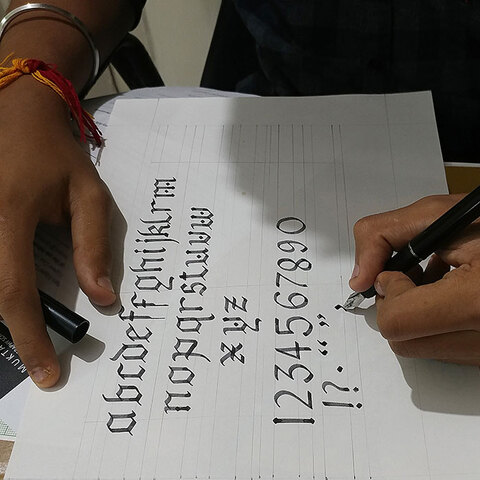 abcdeffghijklrm
nopqrstuvw
xyz
1234567890
!? . “ ” ,
MUKTA